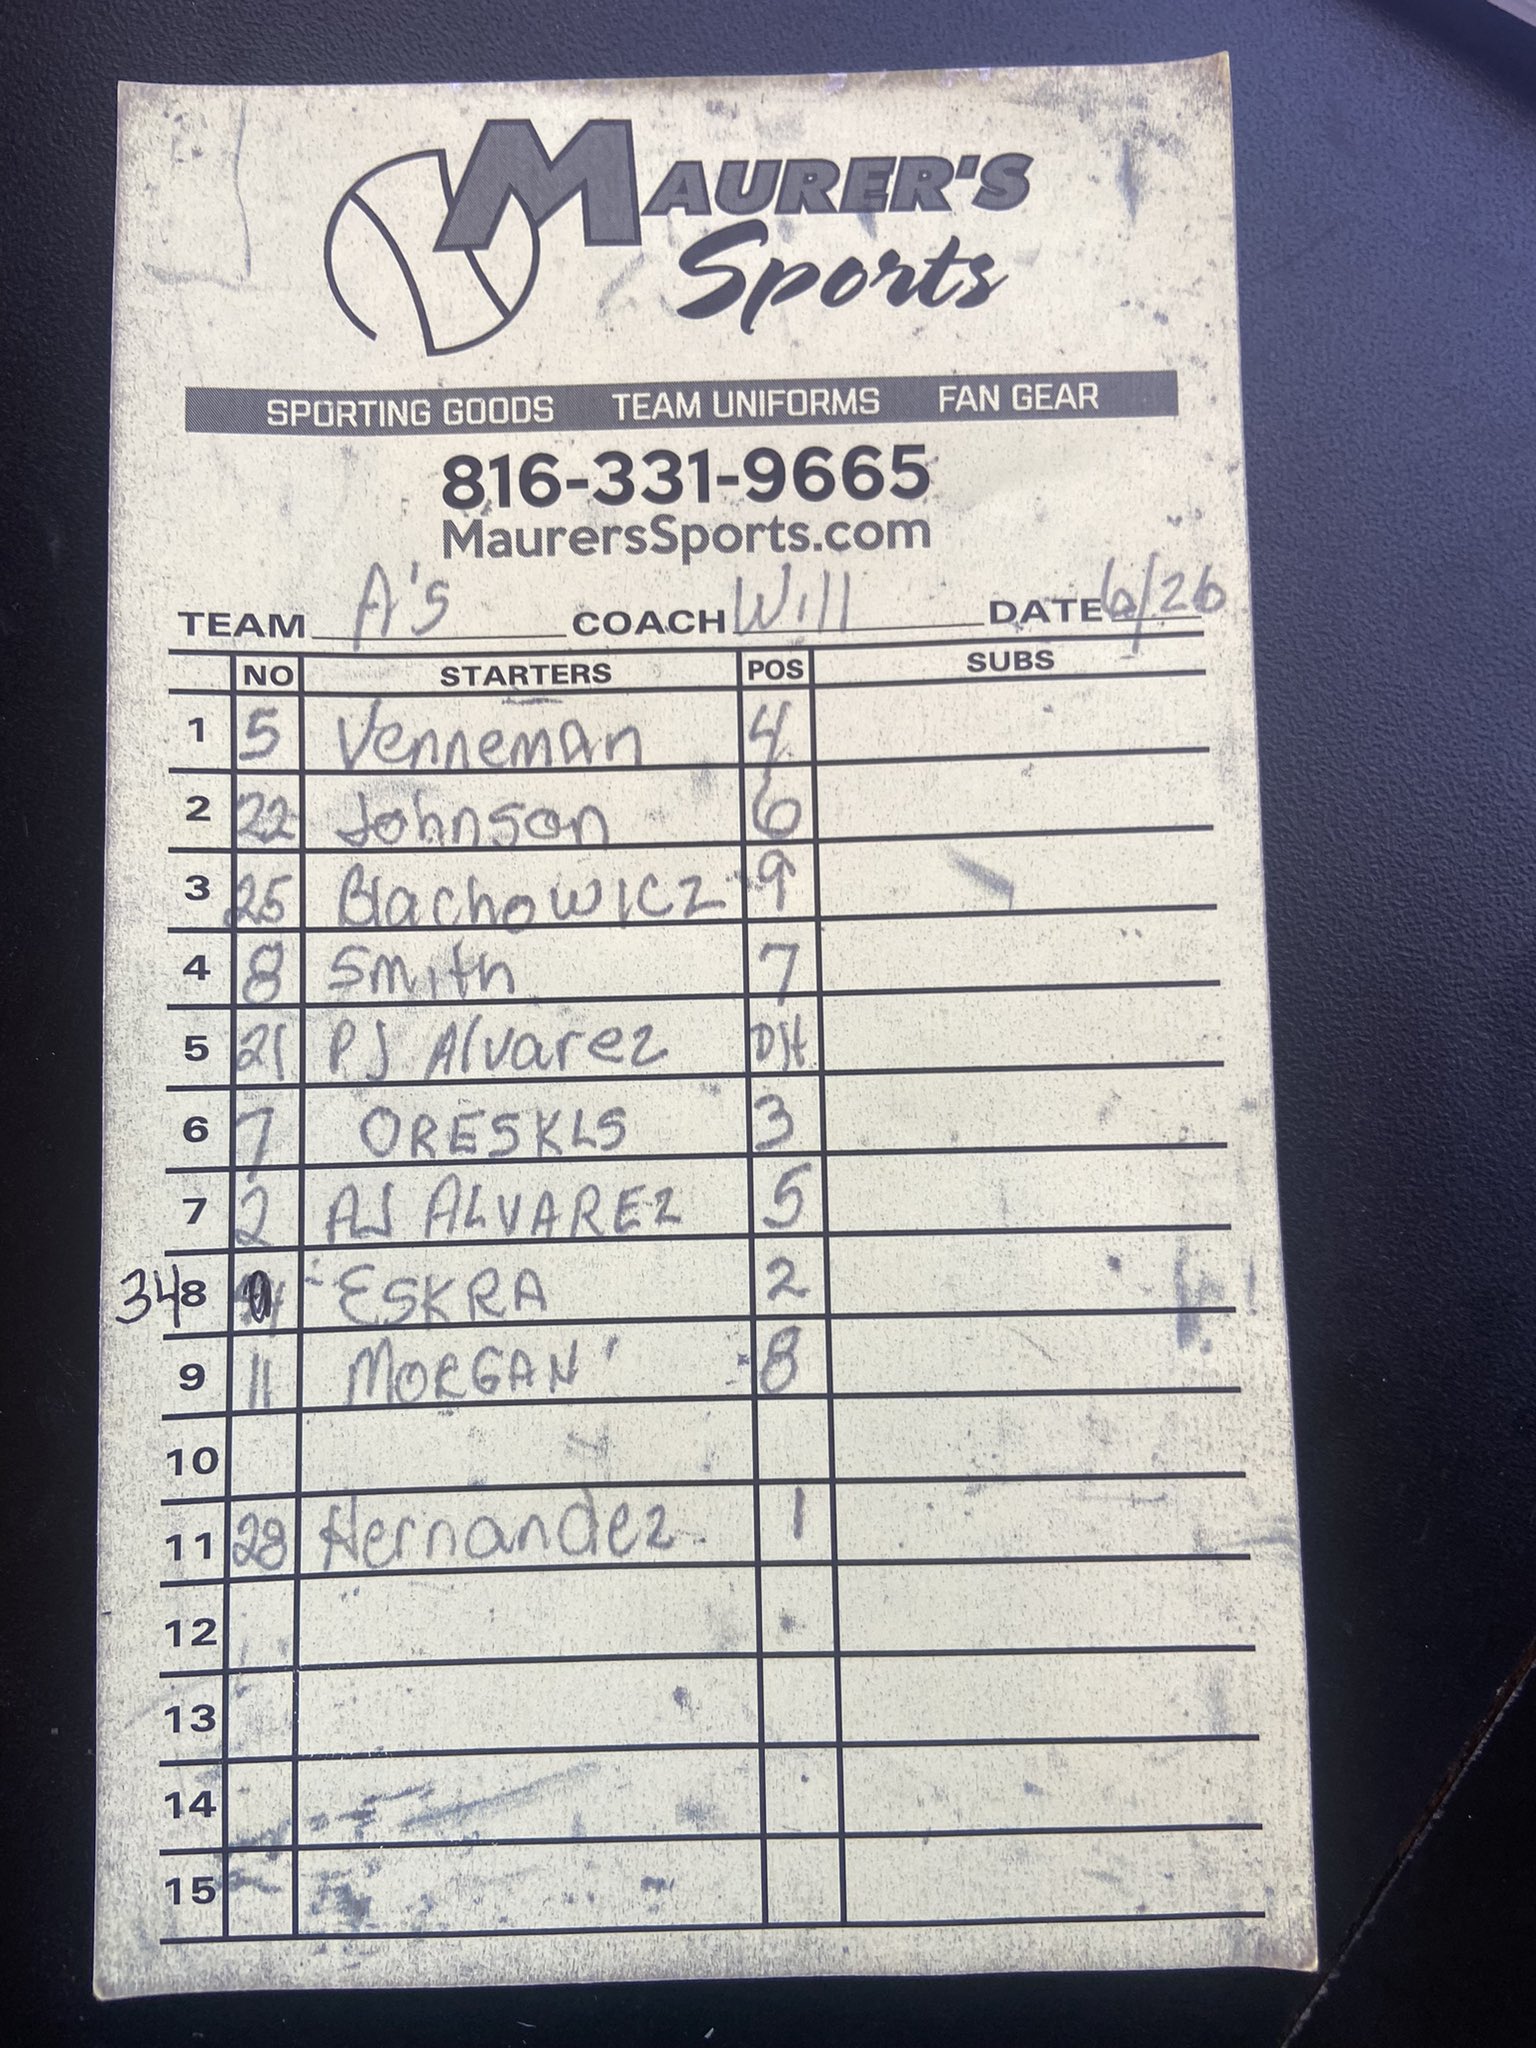 MAURER'S
Sports
SPORTING GOODS TEAM UNIFORMS FAN GEAR
816-331-9665
MaurersSports.com
TEAM A's COACH Will DATE 6/26
NO STARTERS POS SUBS
1 5 Venneman 4
2 22 Johnson 6
3 25 Blachowicz 9
4 8 Smith 7
5 21 PJ Alvarez DH
6 7 ORESKLS 3
7 2 AJ ALVAREZ 5
34 8 ESKRA 2
9 11 MORGAN 8
10
11 28 Hernandez 1
12
13
14
15